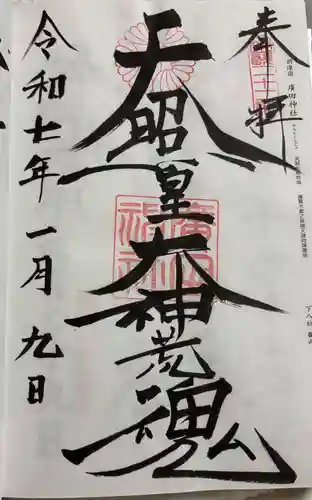 奉拝
天照皇大神荒魂
令和七年一月九日
廣田神社
廣田神社